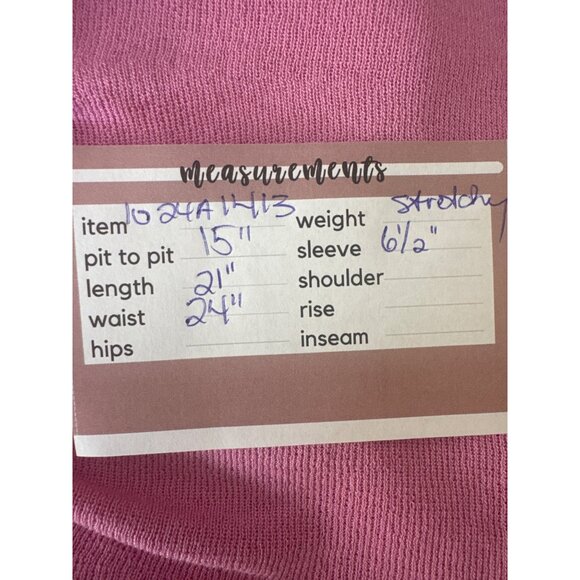 measurements
item 1024A1413 weight stretchy
pit to pit 15" sleeve 6 1/2"
length 21" shoulder
waist 24" rise
hips inseam